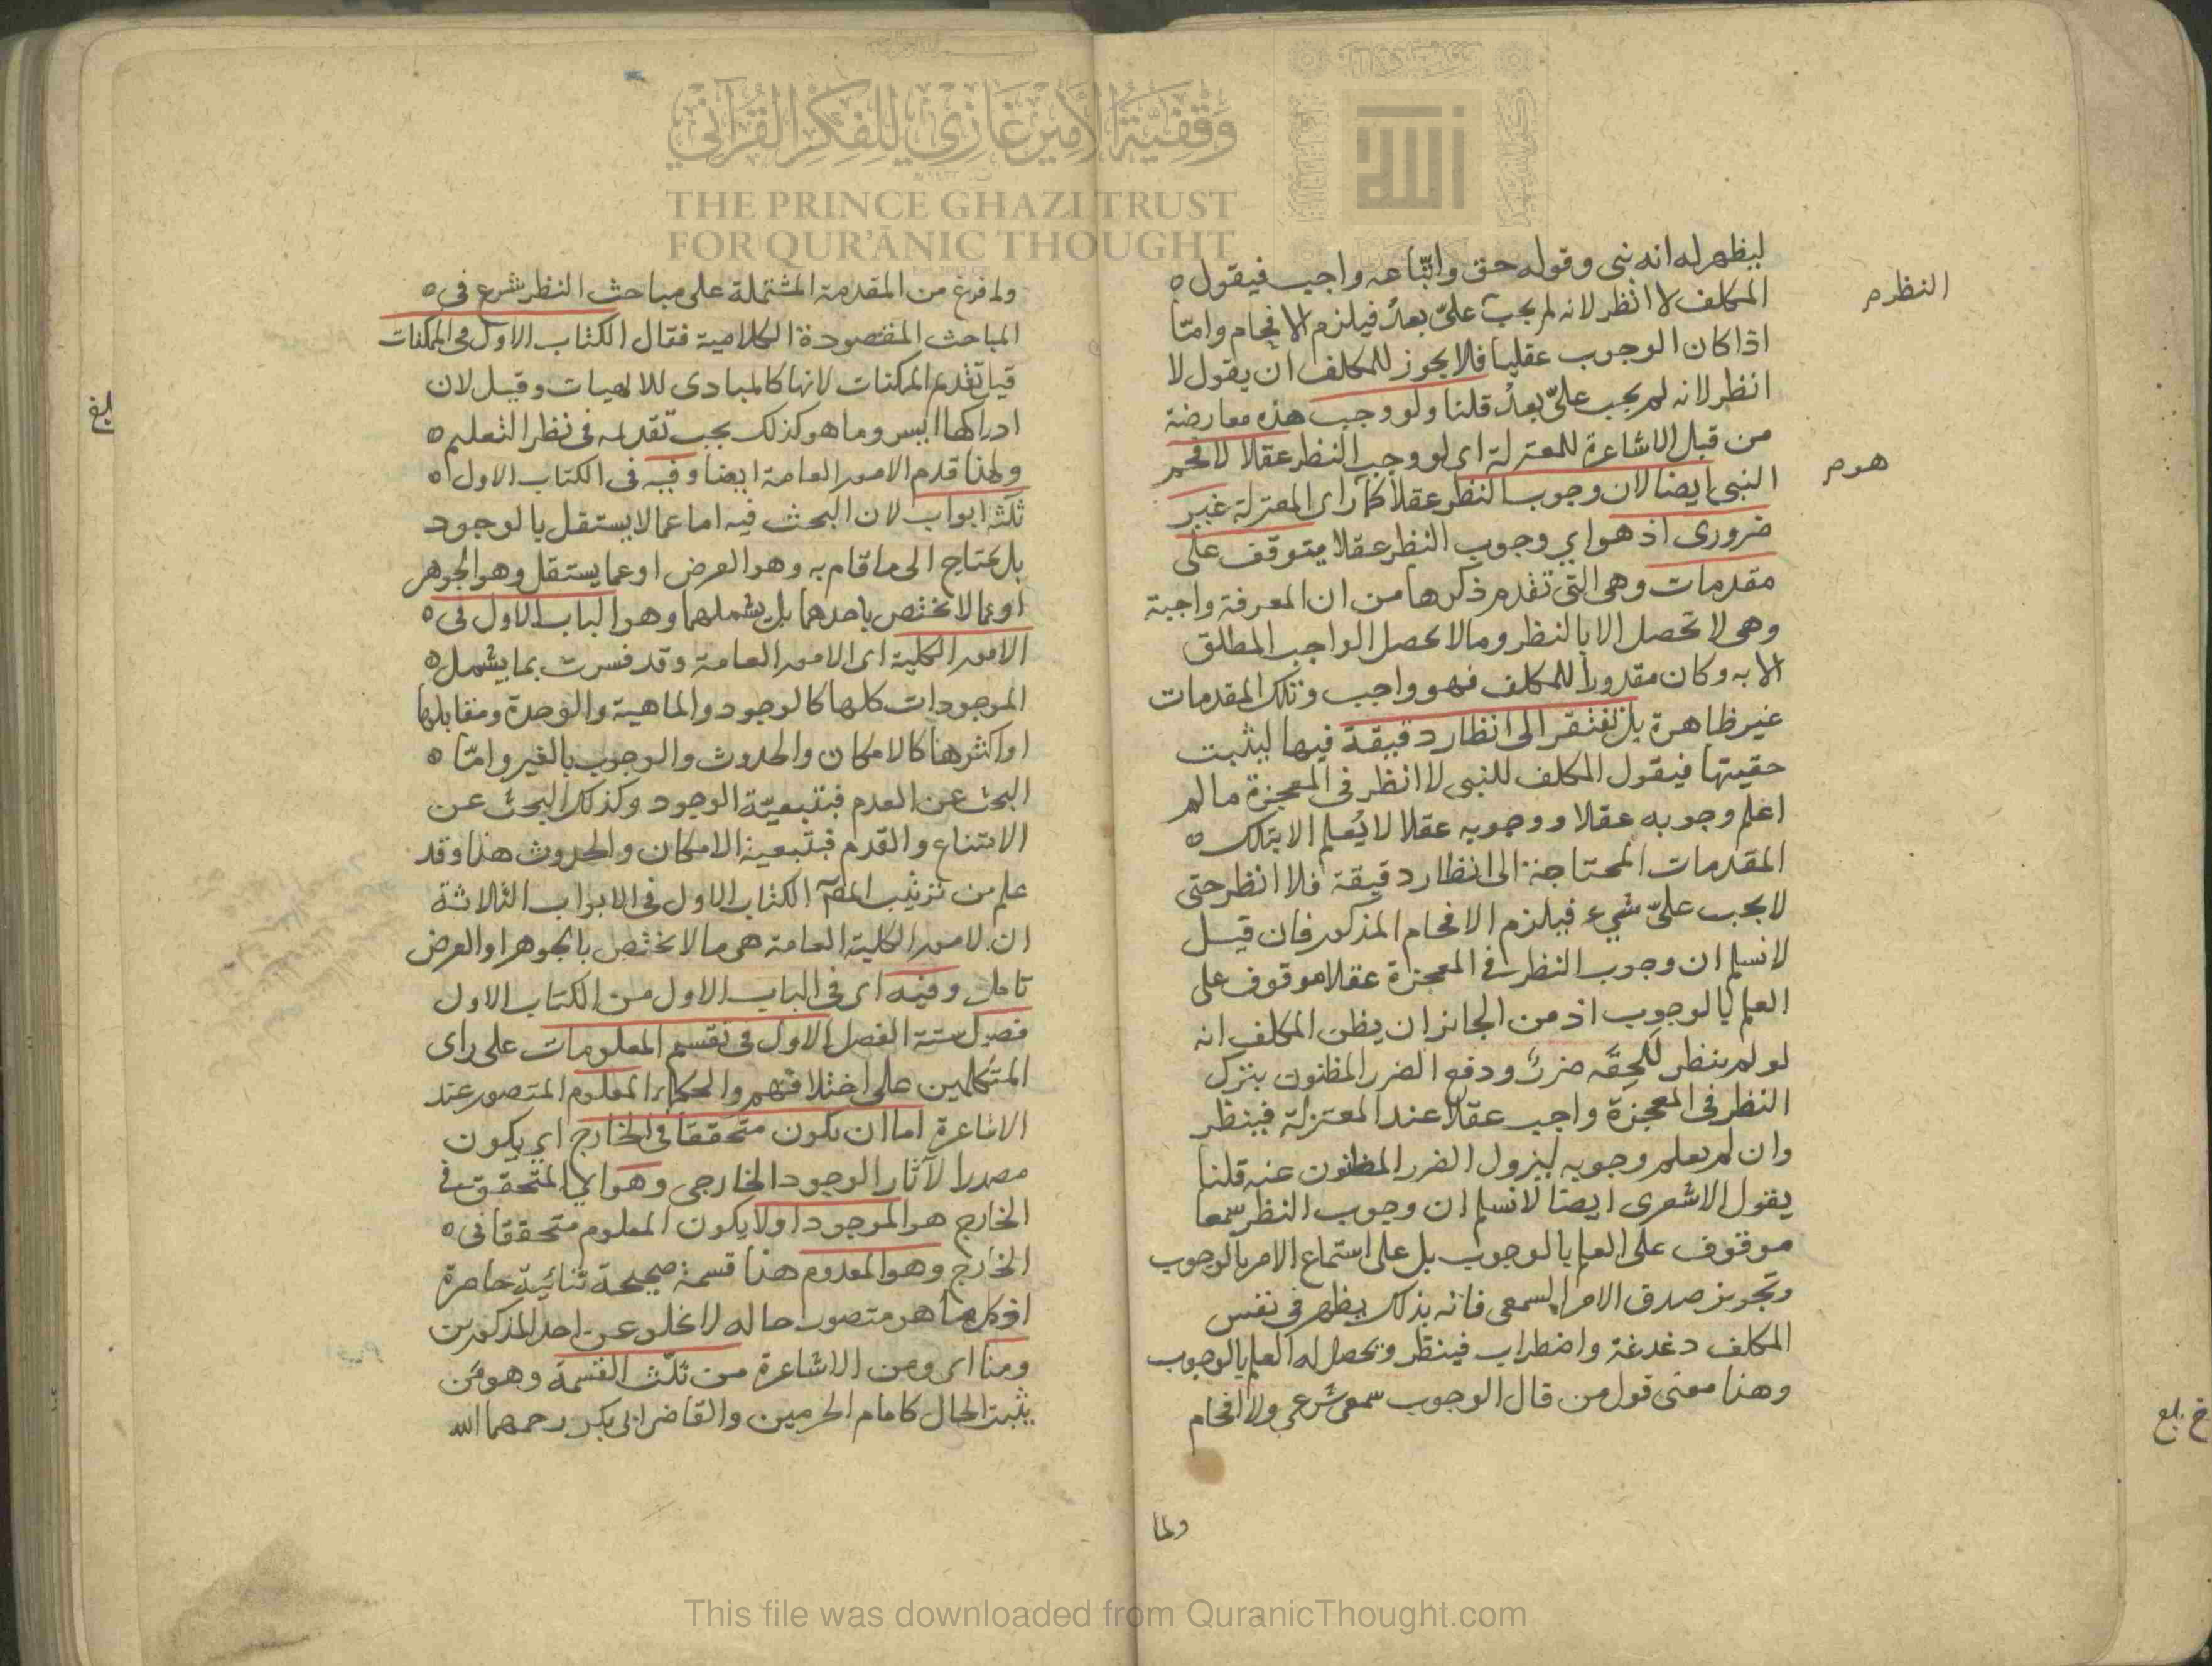 ليظهر له انه نبي وقوله حق واتّباعه واجب فيقول ه
المكلف لا انظر لانه لم يجب علىّ بعدُ فيلزم الافحام وامّا
النظر م
اذا كان الوجوب عقليا فلا يجوز للمكلف ان يقول لا
انظر لانه لم يجب علىّ بعدُ قلنا ولو وجب هذه معارضة
من قبل الاشاعرة للمعتزلة اى لو وجب النظر عقلا لافحم
هو م
النبي ايضا لان وجوب النظر عقلا كما راى المعتزلة غير
ضرورى اذ هو اي وجوب النظر عقلا يتوقف على
مقدمات وهى التى تقدم ذكرها من ان المعرفة واجبة
وهى لا تحصل الا بالنظر وما لا يحصل الواجب المطلق
الا به وكان مقدورا للمكلف فهو واجب وتلك المقدمات
غير ظاهرة بل تفتقر الى انظار دقيقة فيها ليثبت
حقيتها فيقول المكلف للنبى لا انظر فى المعجزة ما لم
اعلم وجوبه عقلا ووجوبه عقلا لا يُعلم الا بتلك ه
المقدمات المحتاجة الى انظار دقيقة فلا انظر حتى
لا يجب علىّ شيء فيلزم الافحام المذكور فان قيل
لا نسلم ان وجوب النظر في المعجزة عقلا موقوف على
العلم بالوجوب اذ من الجائز ان يظن المكلف انه
لو لم ينظر لَلحِقَه ضررٌ ودفع الضرر المظنون بترك
النظر فى المعجزة واجب عقلا عند المعتزلة فينظر
وان لم يعلم وجوبه ليزول الضرر المظنون عنه قلنا
يقول الاشعرى ايضا لا نسلم ان وجوب النظر سمعا
موقوف على العلم بالوجوب بل على استماع الامر بالوجوب
وتجويز صدق الامر السمعى فانه بذلك يظهر فى نفس
المكلف دغدغة واضطراب فينظر ويحصل له العلم بالوجوب
وهذا معنى قول من قال الوجوب سمعى شرعي ولا افحام
ولما
ولما فرغ من المقدمة المشتملة على مباحث النظر شرع فى ه
المباحث المقصودة الكلامية فقال الكتاب الاول فى الممكنات
قيل تقدم الممكنات لانها كالمبادى للالهيات وقيل لان
ادراكها ايسر وما هو كذلك يجب تقديمه فى نظر التعليم ه
ولهذا قدم الامور العامة ايضا وفيه فى الكتاب الاول ه
ثلثة ابواب لان البحث فيه اما عما لا يستقل بالوجود
بل يحتاج الى ما قام به وهو العرض او عما يستقل وهو الجوهر
او عما لا يختص باحدهما بل يشملهما وهو الباب الاول فى ه
الامور الكلية اى الامور العامة وقد فسرت بما يشمل ه
الموجودات كلها كالوجود والماهية والوحدة ومقابلها
او اكثرها كالامكان والحدوث والوجوب بالغير وامّا ه
البحث عن العدم فبتبعيّة الوجود وكذلك البحث عن
الامتناع والقدم فبتبعية الامكان والحدوث هذا وقد
علم من ترتيب المص الكتاب الاول فى الابواب الثلاثة
ان الامور الكلية العامة هى ما لا يختص بالجوهر او العرض
تامل وفيه اى فى الباب الاول من الكتاب الاول
فصول ستة الفصل الاول فى تقسيم المعلومات على راى
المتكلمين على اختلافهم والحكماء المعلوم المتصور عند
الاشاعرة اما ان يكون متحققا فى الخارج اي يكون
مصدرا لآثار الوجود الخارجى وهو اي المتحقق في
الخارج هو الموجود او لا يكون المعلوم متحققا فى ه
الخارج وهو المعدوم هذا قسمة صحيحة ثنائيّة حاصرة
اذ كل ما هو متصور حاله لا يخلو عن احد المذكورين
ومنا اى ومن الاشاعرة من ثلّث القسمة وهو من
يثبت الحال كامام الحرمين والقاضى ابى بكر رحمهما الله